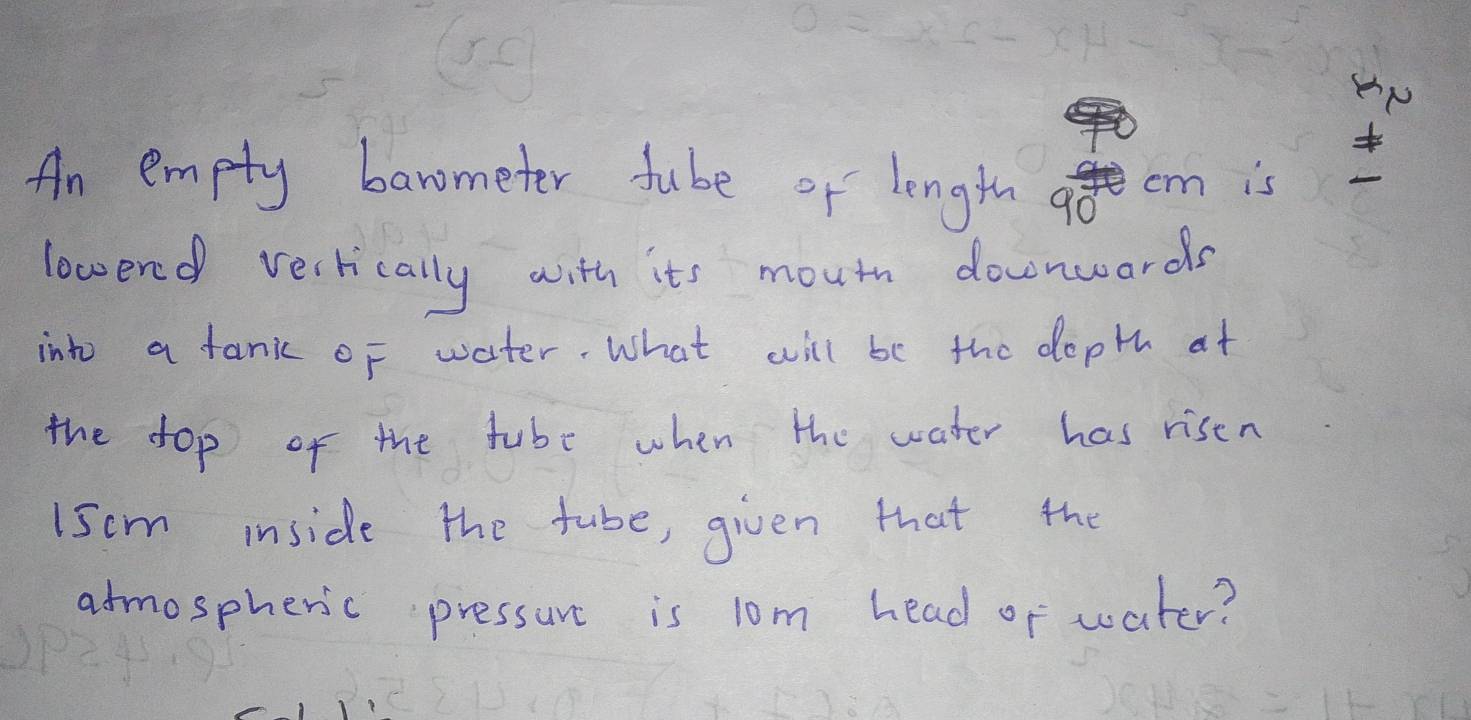 An empty barometer tube of length 90 cm is
lowered vertically with its mouth downwards
into a tank of water. What will be the depth at
the top of the tube when the water has risen
15cm inside the tube, given that the
atmospheric pressure is 10m head of water?
x² ≠ 1